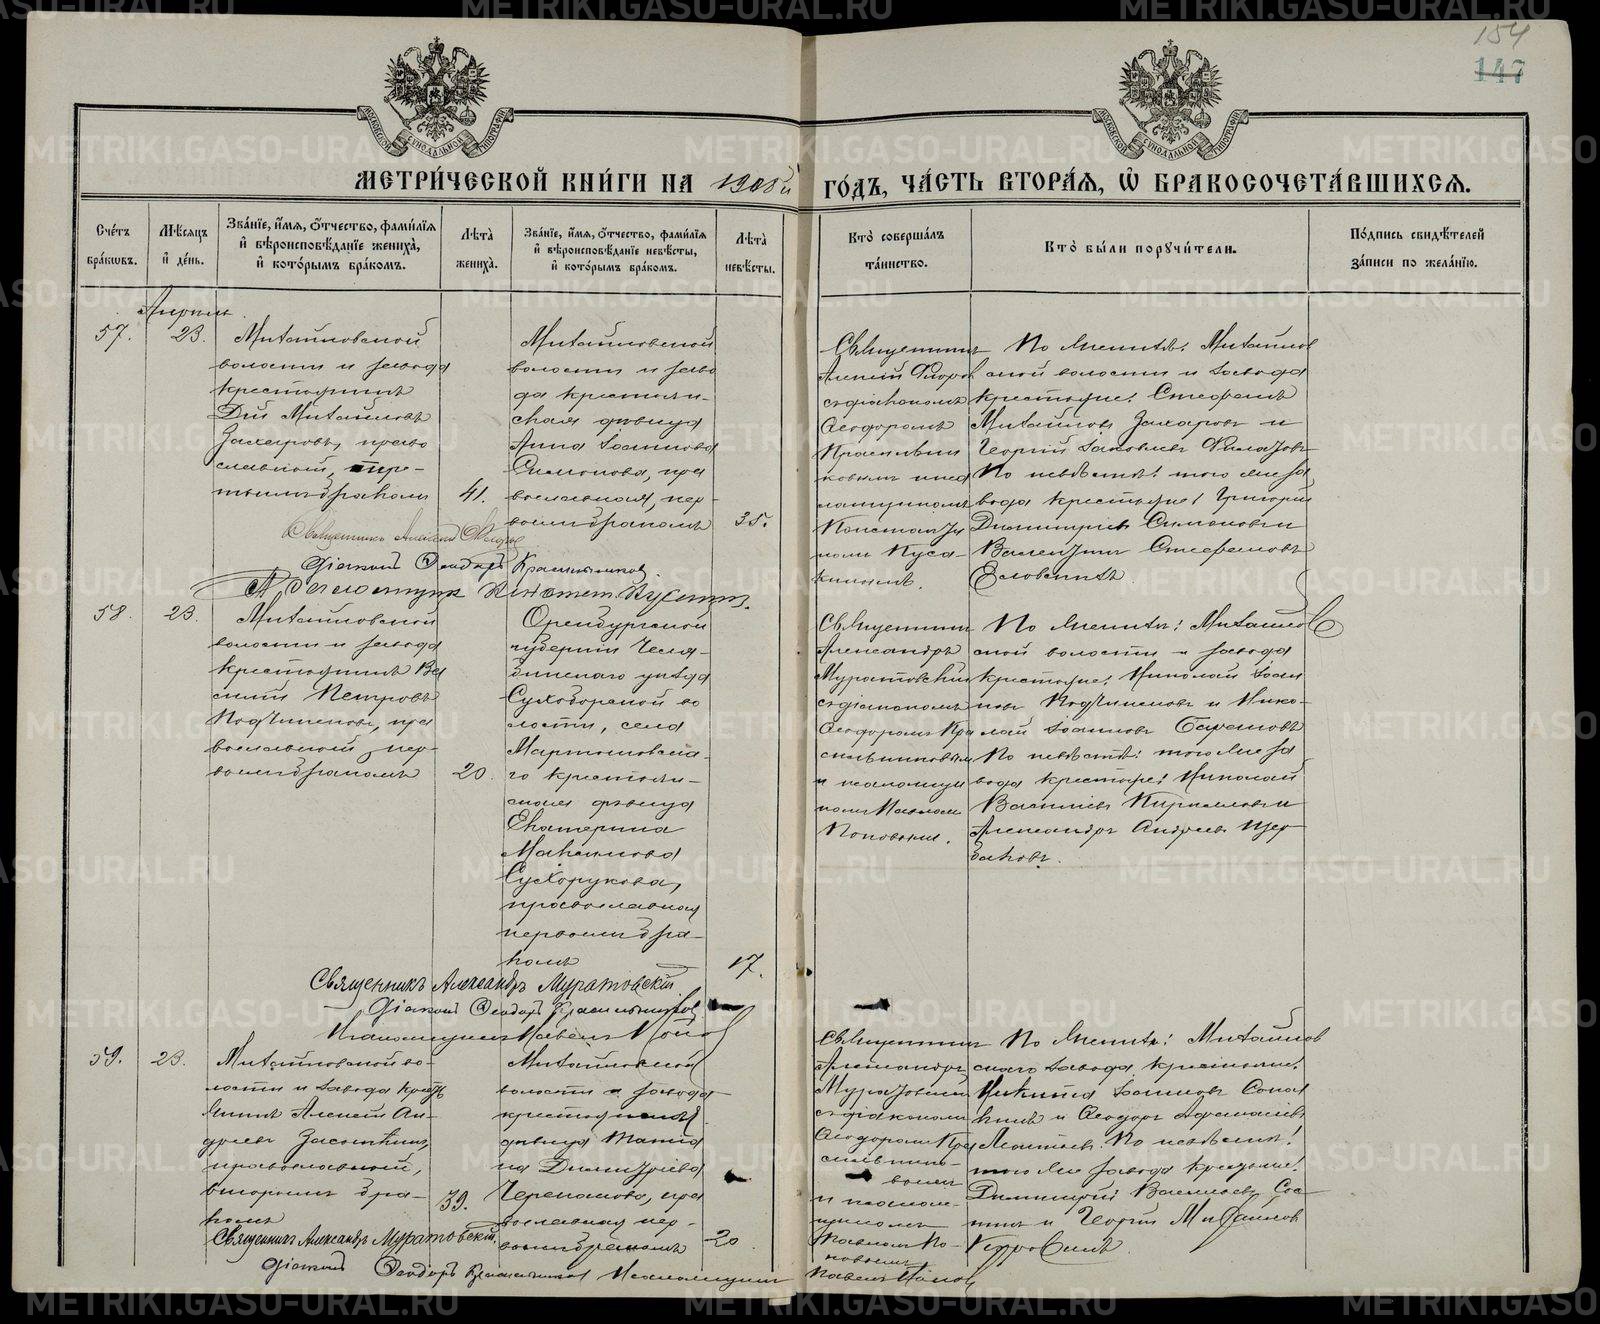 154
147
МЕТРИ́ЧЕСКОЙ КНИ́ГИ НА 1908й ГО́ДЪ, ЧА́СТЬ ВТОРА́Я, Ѽ БРАКОСОЧЕТА́ВШИХСЯ.
Сче́тъ бра́ковъ.
Мѣ́сяцъ и де́нь.
Зва́нїе, и́мя, ѻ́тчество, фами́лїя и вѣроисповѣ́данїе жениха̀, и кото́рымъ бра́комъ.
Лѣ́та жениха̀.
Зва́нїе, и́мя, ѻ́тчество, фами́лїя и вѣроисповѣ́данїе невѣ́сты, и кото́рымъ бра́комъ.
Лѣ́та невѣ́сты.
Кто̀ соверша́лъ та́инство.
Кто̀ бы́ли поручи́тели.
По́дпись свидѣ́телей за́писи по жела́нїю.
Апрѣль
57.
23.
Михайловской
волости и завода
крестьянинъ
Дій Михайловъ
Захаровъ, право
славный, тре-
тьимъ бракомъ
41.
Михайловской
волости и заво
да крестьян-
ская дѣвица
Анна Іоаннова
Симонова, пра
вославная, пер-
вымъ бракомъ
35.
Священникъ
Алексій Флоров
съ діакономъ
Ѳеодоромъ
Красильни
ковымъ и пса
ломщикомъ
Константи
номъ Куса-
кинымъ.
По женихѣ: Михайлов
ской волости и завода
крестьяне: Стефанъ
Михайловъ Захаровъ и
Георгій Іаковлевъ Филатовъ
По невѣстѣ: того же за
вода крестьяне: Григорій
Димитріевъ Симоновъ и
Валентинъ Стефановъ
Еловскихъ.
Священникъ Алексій Флоров
Діаконъ Ѳеодоръ Красильниковъ.
Псаломщикъ Констант. Кусакинъ.
58.
23.
Михайловской
волости и завода
крестьянинъ Ва
силій Петровъ
Подчиненовъ, пра
вославный, пер-
вымъ бракомъ
20.
Оренбургской
губерніи Челя-
бинскаго уѣзда
Сухоборской во
лости, села
Мартыновска-
го крестьян-
ская дѣвица
Екатерина
Максимова
Сухорукова,
православная
первымъ бра-
комъ
17.
Священникъ
Александръ
Муратовскій
съ діакономъ
Ѳеодоромъ Кра
сильниковымъ
и псаломщи
комъ Павломъ
Поповымъ.
По женихѣ: Михайлов
ской волости и завода
крестьяне: Николай Іоан
новъ Подчиненовъ и Нико-
лай Іоанновъ Барановъ
По невѣстѣ: того же за
вода крестьяне: Николай
Василіевъ Кирилловъ и
Александръ Андреевъ Щер
баковъ.
Священникъ Александръ Муратовскій
Діаконъ Ѳеодоръ Красильниковъ
Псаломщикъ Павелъ Попов
59.
23.
Михайловской во-
лости и завода кресть
янинъ Алексій Ан-
дреевъ Засыпкинъ,
православный,
вторымъ бра-
комъ
39.
Михайловской
волости и завода
крестьянская
дѣвица Татiа
на Димитріева
Черепанова, пра
вославная пер-
вымъ бракомъ
20
Священникъ
Александръ
Муратовскій
съ діакономъ
Ѳеодоромъ Кра
сильнико-
вымъ
и псалом-
щикомъ
Павломъ По-
повымъ
По женихѣ: Михайлов
скаго завода крестьяне:
Никита Іоанновъ Сокол
кинъ и Ѳеодоръ Аѳанасіевъ
Леонтьевъ. По невѣстѣ:
того же завода крестьяне:
Димитрій Василіевъ Сос-
нинъ и Георгій Михайлов
Священникъ Александръ Муратовскій.
Діаконъ Ѳеодоръ Красильников Псаломщикъ Павелъ Попов